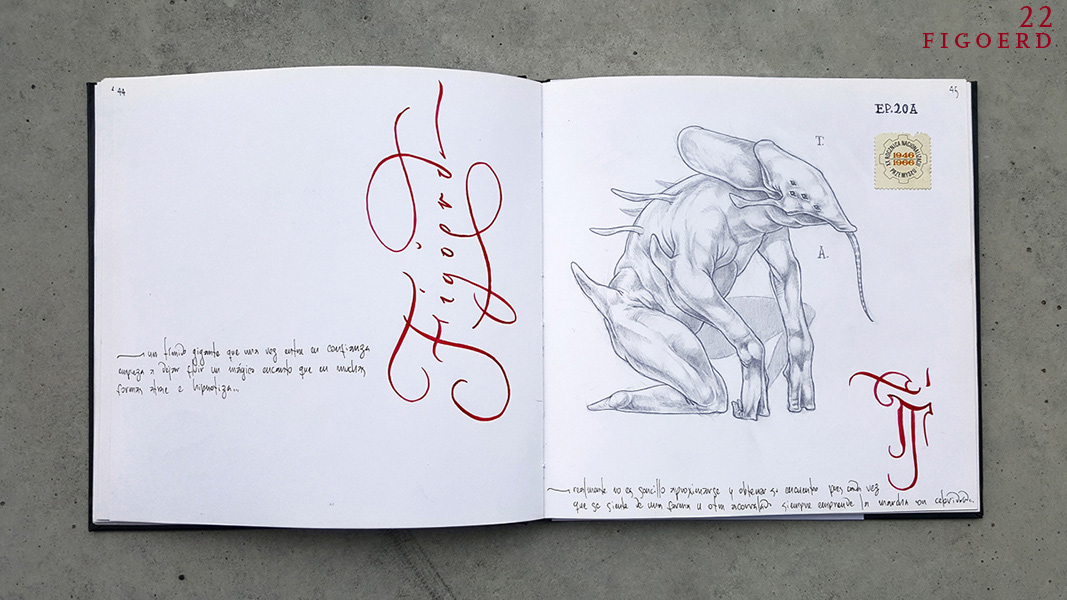 22
FIGOERD
44
un tímido gigante que una vez entra en confianza
empieza a dejar fluir un mágico encanto que en muchas
formas atrae e hipnotiza...
45
EP.20A
XX ROCZNICA NACJONALIZACJI
1946
1966
PRZEMYSŁU
T.
A.
realmente no es sencillo aproximarse y obtener su encuentro pues cada vez
que se siente de una forma u otra acorralado siempre emprende la marcha con